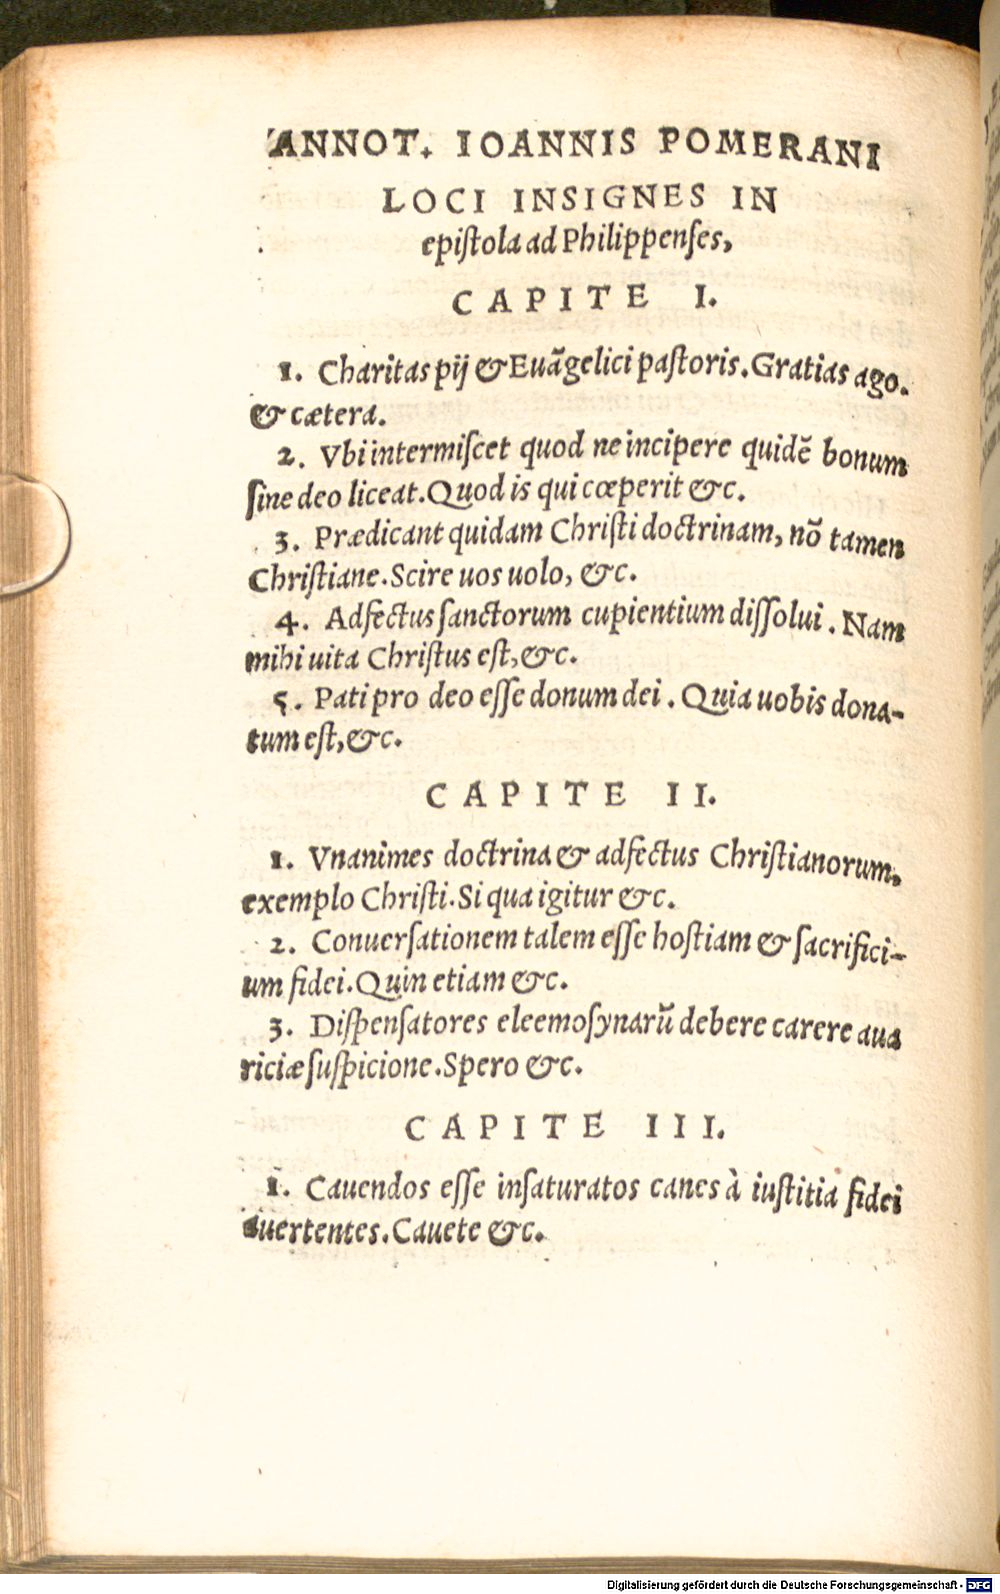 ANNOT. IOANNIS POMERANI
LOCI INSIGNES IN
epiſtola ad Philippenſes,
CAPITE I.
1. Charitas pij & Euãgelici paſtoris. Gratias ago.
& cætera.
2. Vbi intermiſcet quod ne incipere quidē bonum
ſine deo liceat. Quod is qui cœperit &c.
3. Prædicant quidam Chriſti doctrinam, nõ tamen
Chriſtiane. Scire uos uolo, &c.
4. Adfectus ſanctorum cupientium diſſolui. Nam
mihi uita Chriſtus eſt, &c.
5. Pati pro deo eſſe donum dei. Quia uobis dona-
tum eſt, &c.
CAPITE II.
1. Vnanimes doctrina & adfectus Chriſtianorum,
exemplo Chriſti. Si qua igitur &c.
2. Conuerſationem talem eſſe hoſtiam & ſacrifici-
um fidei. Quin etiam &c.
3. Diſpenſatores eleemoſynarũ debere carere aua
riciæ ſuſpicione. Spero &c.
CAPITE III.
1. Cauendos eſſe inſaturatos canes à iuſtitia fidei
auertentes. Cauete &c.
Digitalisierung gefördert durch die Deutsche Forschungsgemeinschaft - DFG